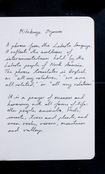 Mitakuye Oyasin
A phrase from the Lakota language
It reflects the worldview of
interconnectedness held by the
Lakota people of North America.
The phrase translates in English
as "all my relatives," "we are
all related," or "all my relations."
It is a prayer of oneness and
harmony with all forms of life:
other people, animals, birds,
insects, trees and plants, and
even rocks, rivers, mountains
and valleys.